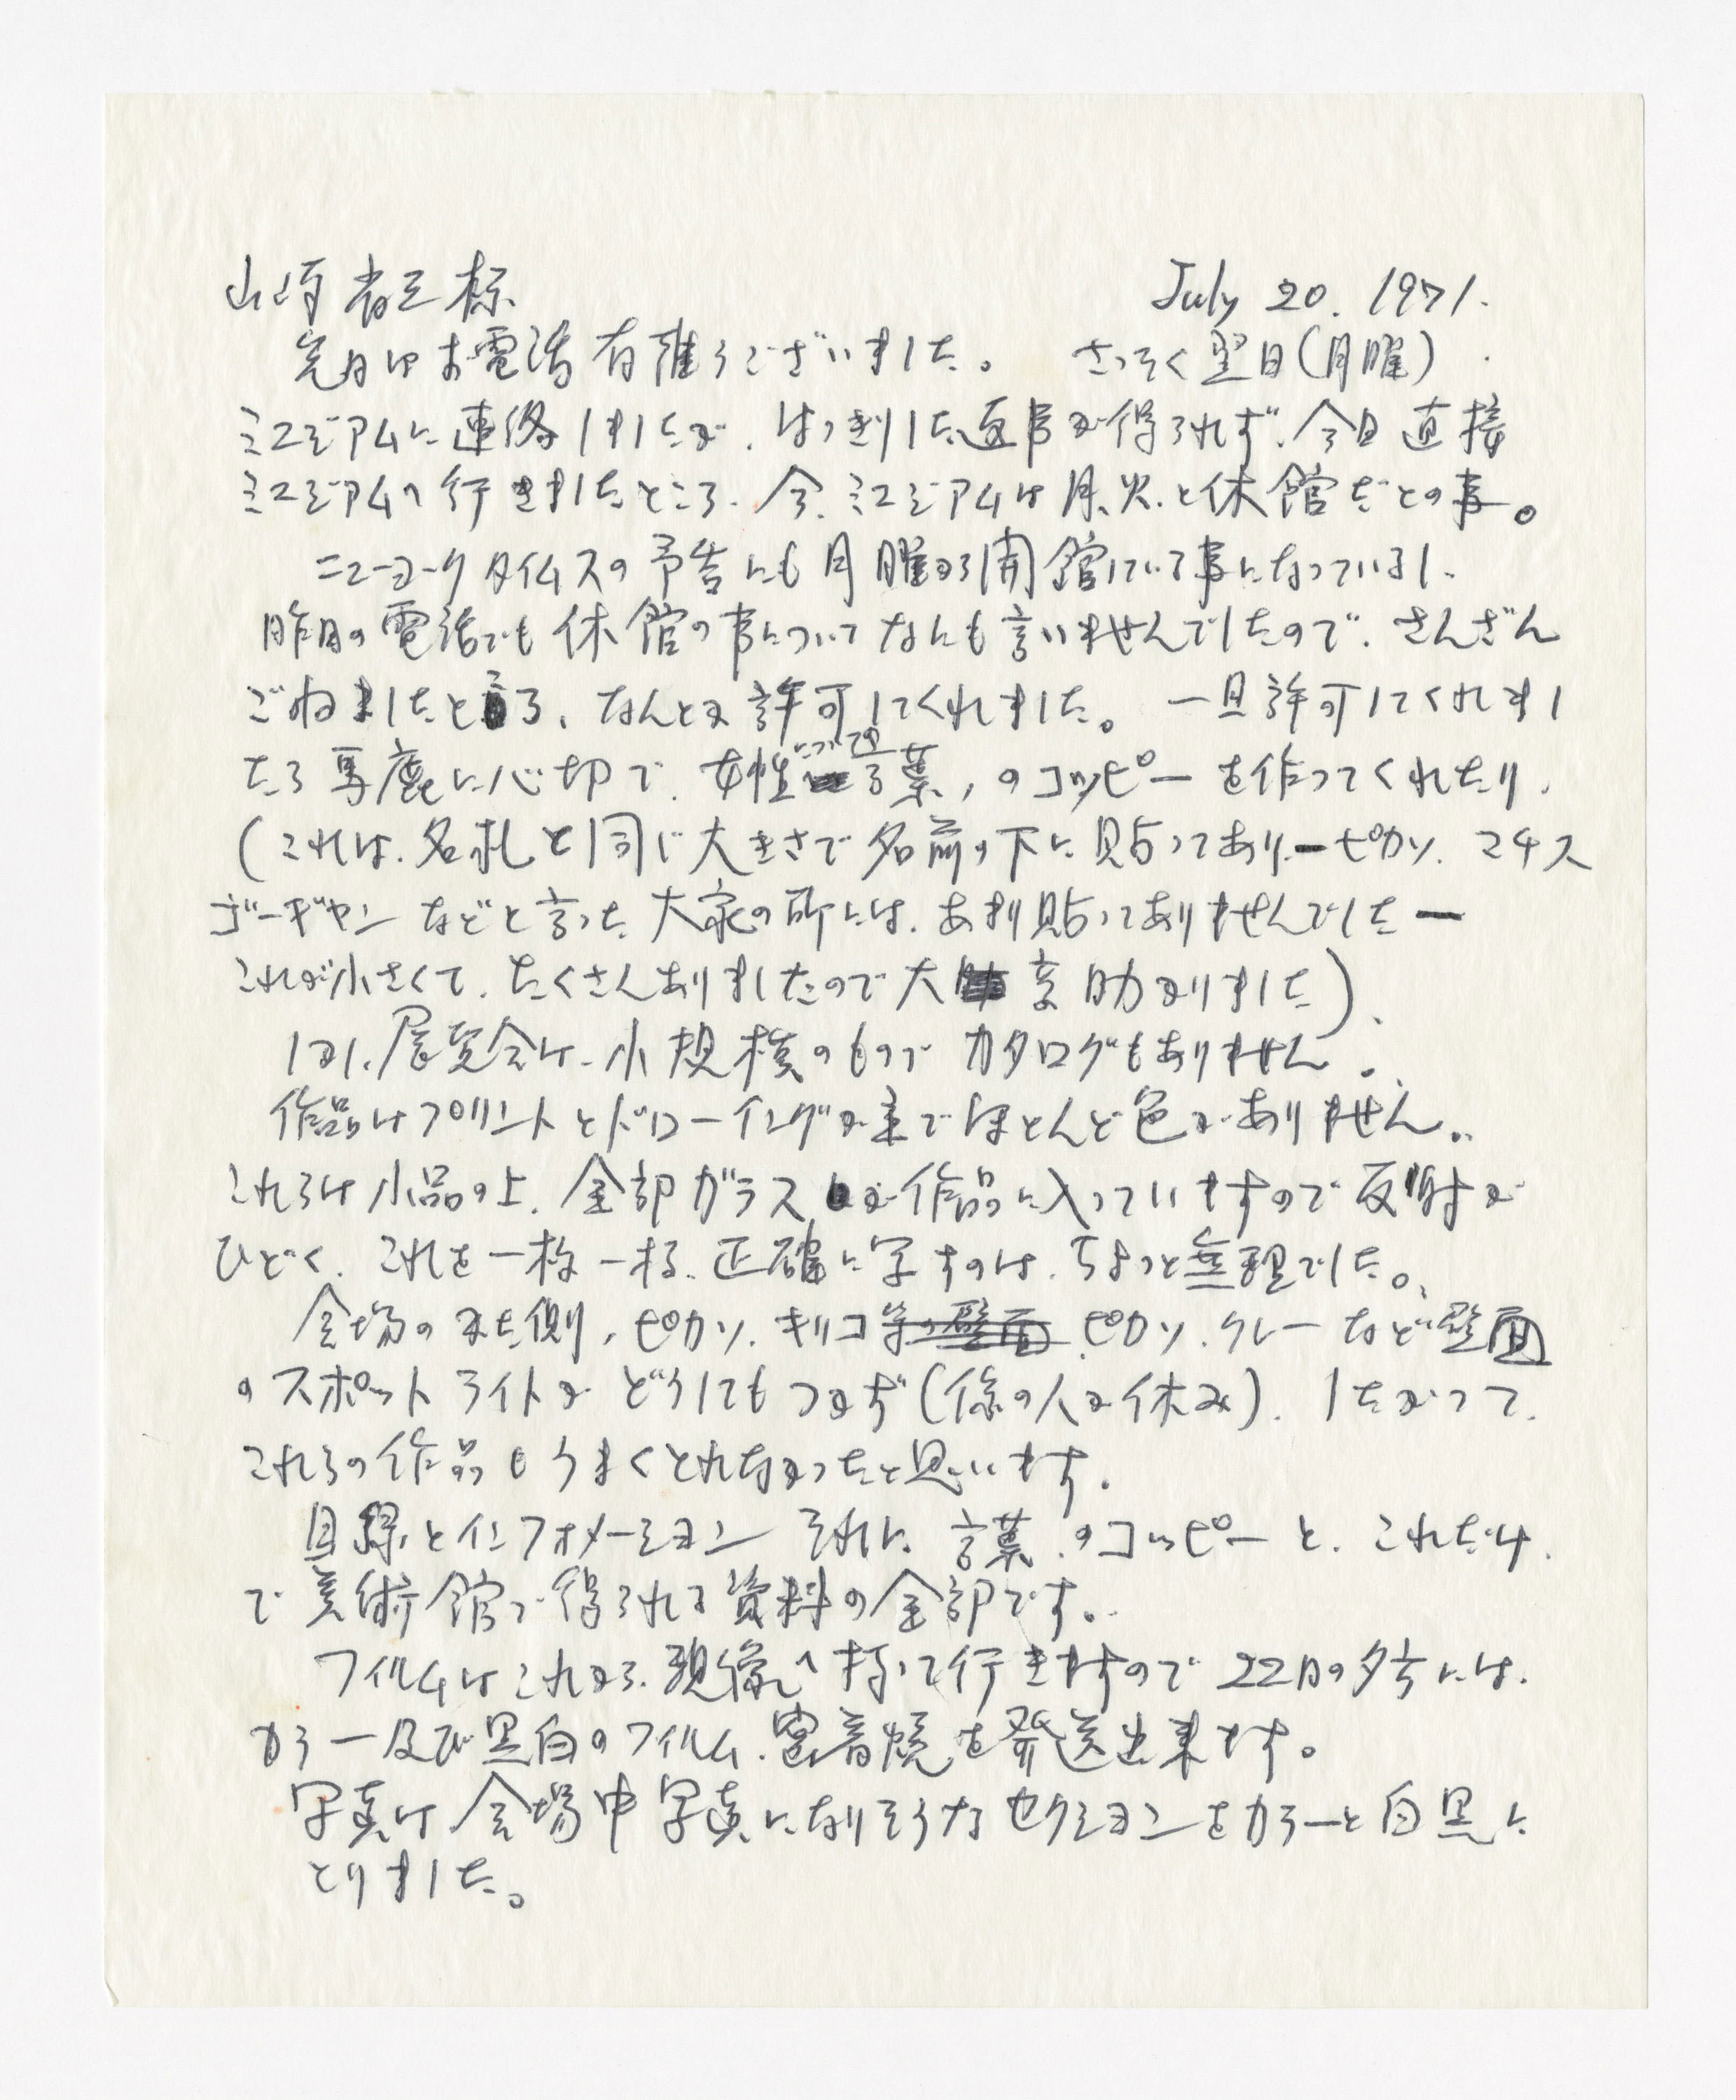 山崎省三様 July 20. 1971.
先日はお電話有難うございました。 さっそく翌日(月曜)
ミュージアムに連絡しましたが、はっきりした返事が得られず、今日直接
ミュージアムへ行きましたところ、今、ミュージアムは月、火、と休館だとの事。
ニューヨークタイムスの予告にも月曜から開館している事になっているし、
昨日の電話でも休館の事についてなにも言いませんでしたので、さんざん
ごねましたところ、なんとか許可してくれました。一旦許可してくれまし
たら馬鹿に心切で、女性についての言葉、のコッピーを作ってくれたり、
(これは、名札と同じ大きさで名前の下に貼ってあり、ーピカソ、マチス
ゴーギャンなどと言った大家の所には、あまり貼ってありませんでしたー
これが小さくて、たくさんありましたので大変助かりました)、
しかし、展覧会は、小規模のものでカタログもありません。
作品はプリントとドローイングが主でほとんど色がありません。
これらは小品の上、全部ガラスが作品に入っていますので反射が
ひどく、これを一枚一枚、正確に写すのは、ちょっと無理でした。
会場の右側、ピカソ、キリコ等の壁面、ピカソ、クレーなど壁面
のスポットライトがどうしてもつかず(係の人が休み)、したがって、
これらの作品もうまくとれなかったと思います。
目録とインフォメーションそれに、言葉、のコッピーと、これだけ、
で美術館で得られる資料の全部です。
フィルムはこれから、現像へ持って行きますので22日の夕方には、
カラー及び黒白のフィルム、密着焼を発送出来ます。
写真は会場中写真になりそうなセクションをカラーと白黒に
とりました。